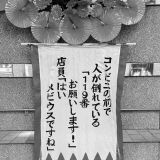 コンビニの前で
人が倒れている
「119番
お願いします!」
店員「はい
メビウスですね」